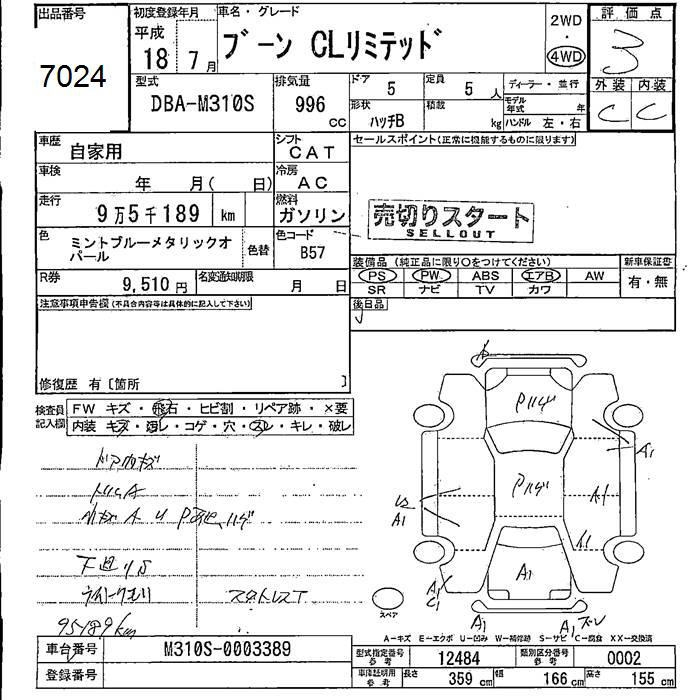 出品番号
7024
初度登録年月
平成
18年 7月
車名・グレード
ブーン CLリミテッド
2WD
・
4WD
評価点
3
外装 内装
C C
型式
DBA-M310S
排気量
996 cc
ドア 5
定員 5人
ディーラー・並行
形状 ハッチB
積載 kg
モデル年式 年
ハンドル 左・右
車歴 自家用
シフト CAT
セールスポイント(正常に機能するものに限ります)
車検 年 月( 日)
冷房 AC
走行 9万5千189 km
燃料 ガソリン
売切りスタート
SELLOUT
色 ミントブルーメタリックオパール
色替
色コード B57
装備品(純正品に限り○をつけてください)
新車保証書
PS PW ABS エアB AW
有・無
SR ナビ TV カワ
R券 9,510円
名変通知期限 月 日
後日品
注意事項申告欄(不具合内容等は具体的に記入して下さい)
修復歴 有〔箇所 〕
検査員記入欄
FW キズ・飛石・ヒビ割・リペア跡・×要
内装 キズ・汚レ・コゲ・穴・スレ・キレ・破レ
下廻りS
スタットレスT
95189km
Pハゲ
Pハゲ
A1
A1
A1
A1
C1
A1
A1
スペア
A-キズ E-エクボ U-凹み W-補修跡 S-サビ C-腐食 XX-交換済
車台番号 M310S-0003389
登録番号
型式指定番号 参考 12484
類別区分番号 参考 0002
車庫証明用 参考 長さ 359cm 幅 166cm 高さ 155cm